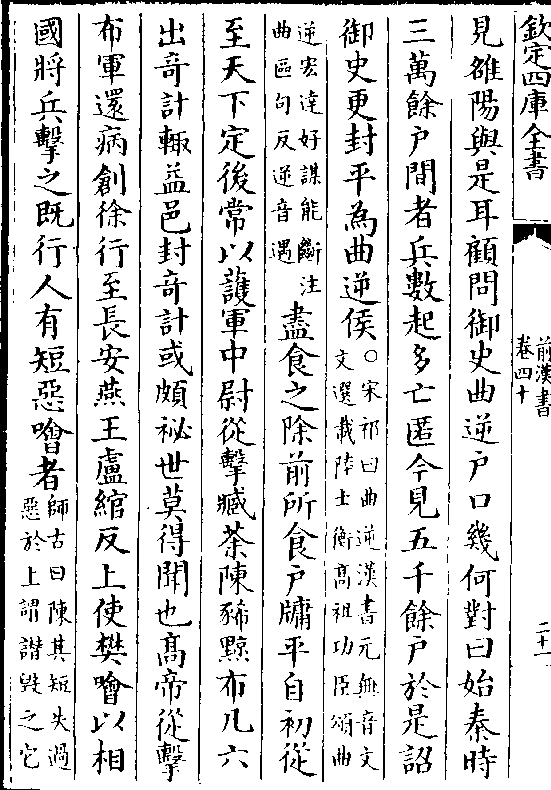 欽定四庫全書
前漢書
卷四十
二十一
見雒陽與是耳顧問御史曲逆戶口幾何對曰始秦時
三萬餘戶間者兵數起多亡匿今見五千餘戶於是詔
御史更封平為曲逆侯○宋祁曰曲逆漢書元無音文
文選載陸士衡高祖功臣頌曲
逆宏達好謀能斷注
曲區句反逆音遇
盡食之除前所食戶牖平自初從
至天下定後常以護軍中尉從擊臧荼陳豨黥布凡六
出奇計輒益邑封奇計或頗祕世莫得聞也高帝從擊
布軍還病創徐行至長安燕王盧綰反上使樊噲以相
國將兵擊之既行人有短惡噲者
師古曰陳其短失過
惡於上謂譖毀之它